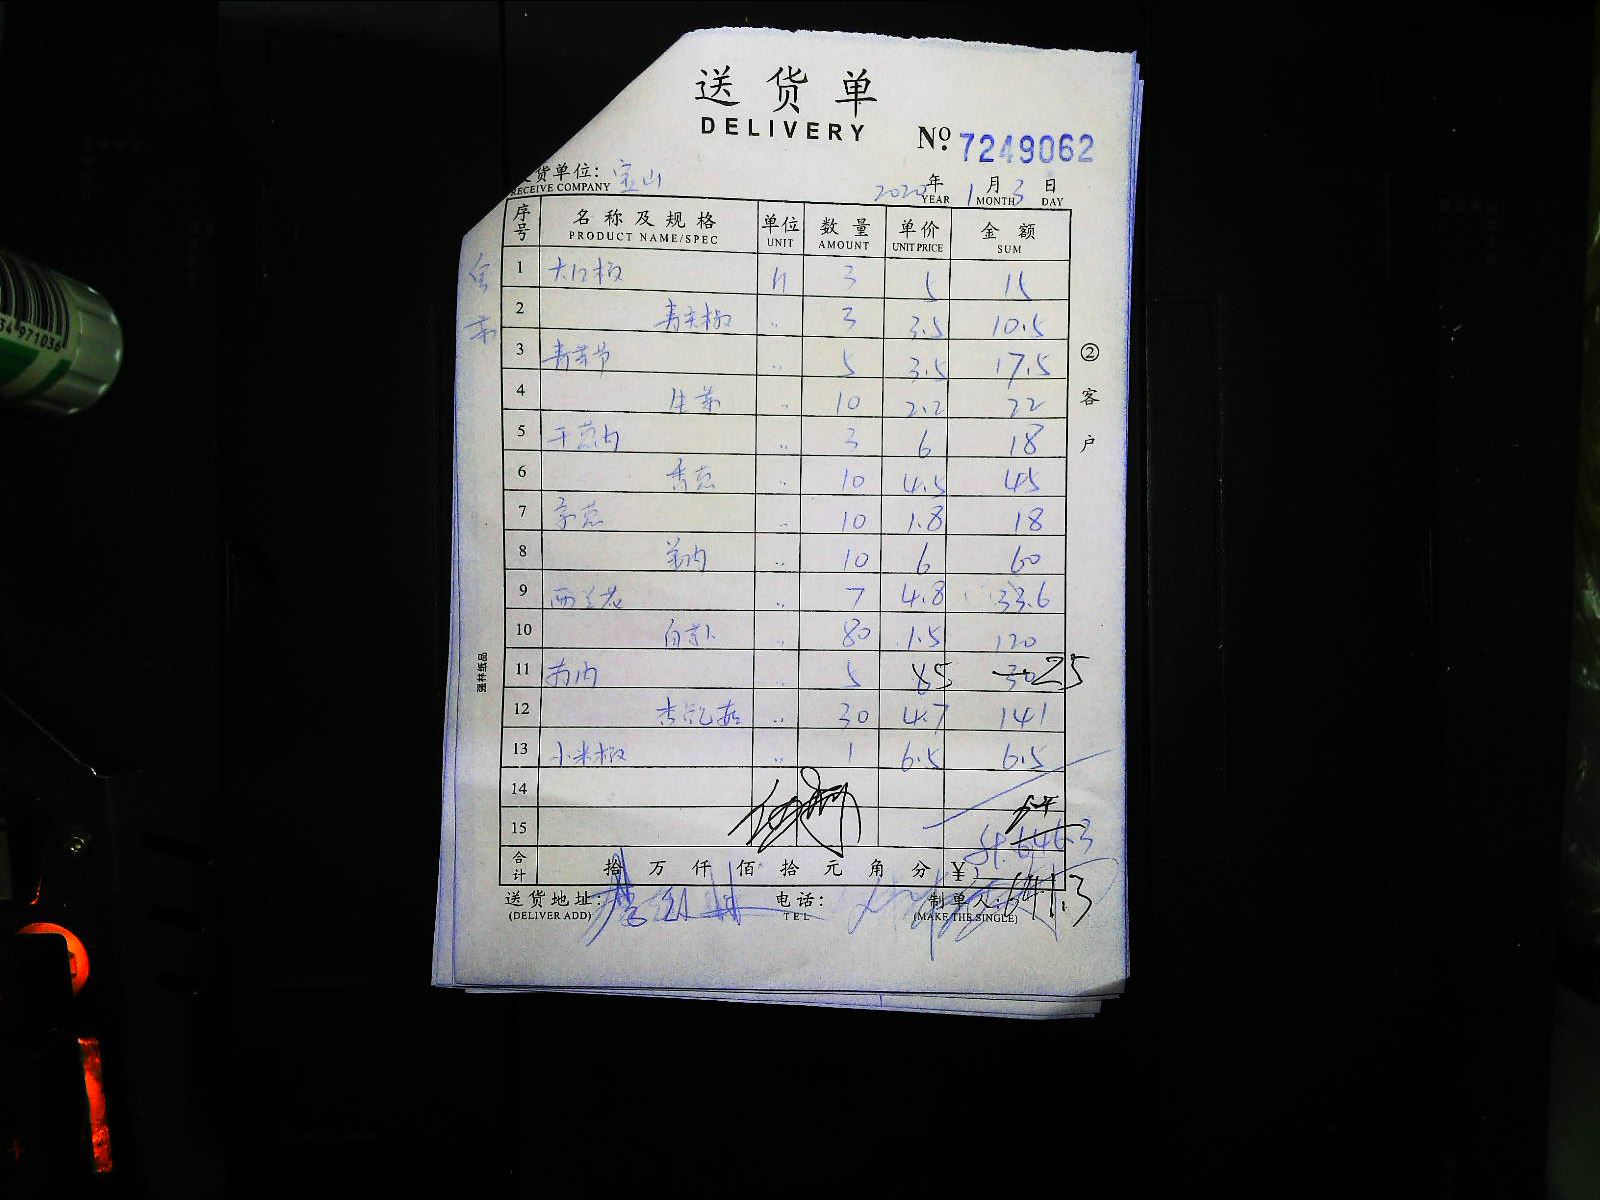 送货单
DELIVERY
№ 7249062
货单位：宝山
RECEIVE COMPANY
2020年 1月 3日
YEAR MONTH DAY
序号 名称及规格 单位 数量 单价 金额
PRODUCT NAME/SPEC UNIT AMOUNT UNIT PRICE SUM
1 大红椒 斤 3 5 15
2 青尖椒 〃 3 3.5 10.5
3 青芥节 〃 5 3.5 17.5
4 生菜 〃 10 2.2 22
5 干葱肉 〃 3 6 18
6 香葱 〃 10 4.5 45
7 京葱 〃 10 1.8 18
8 姜肉 〃 10 6 60
9 西兰花 〃 7 4.8 33.6
10 白萝卜 〃 80 1.5 120
11 〃 5 5 30 25
12 杏鲍菇 〃 30 4.7 141
13 小米椒 〃 1 6.5 6.5
14
15 646.3
合计 拾 万 仟 佰 拾 元 角 分 ¥
541.3
送货地址：
(DELIVER ADD)
电话：
TEL
制单人：
(MAKE THE SINGLE)
②客户
强林纸品
34 971036